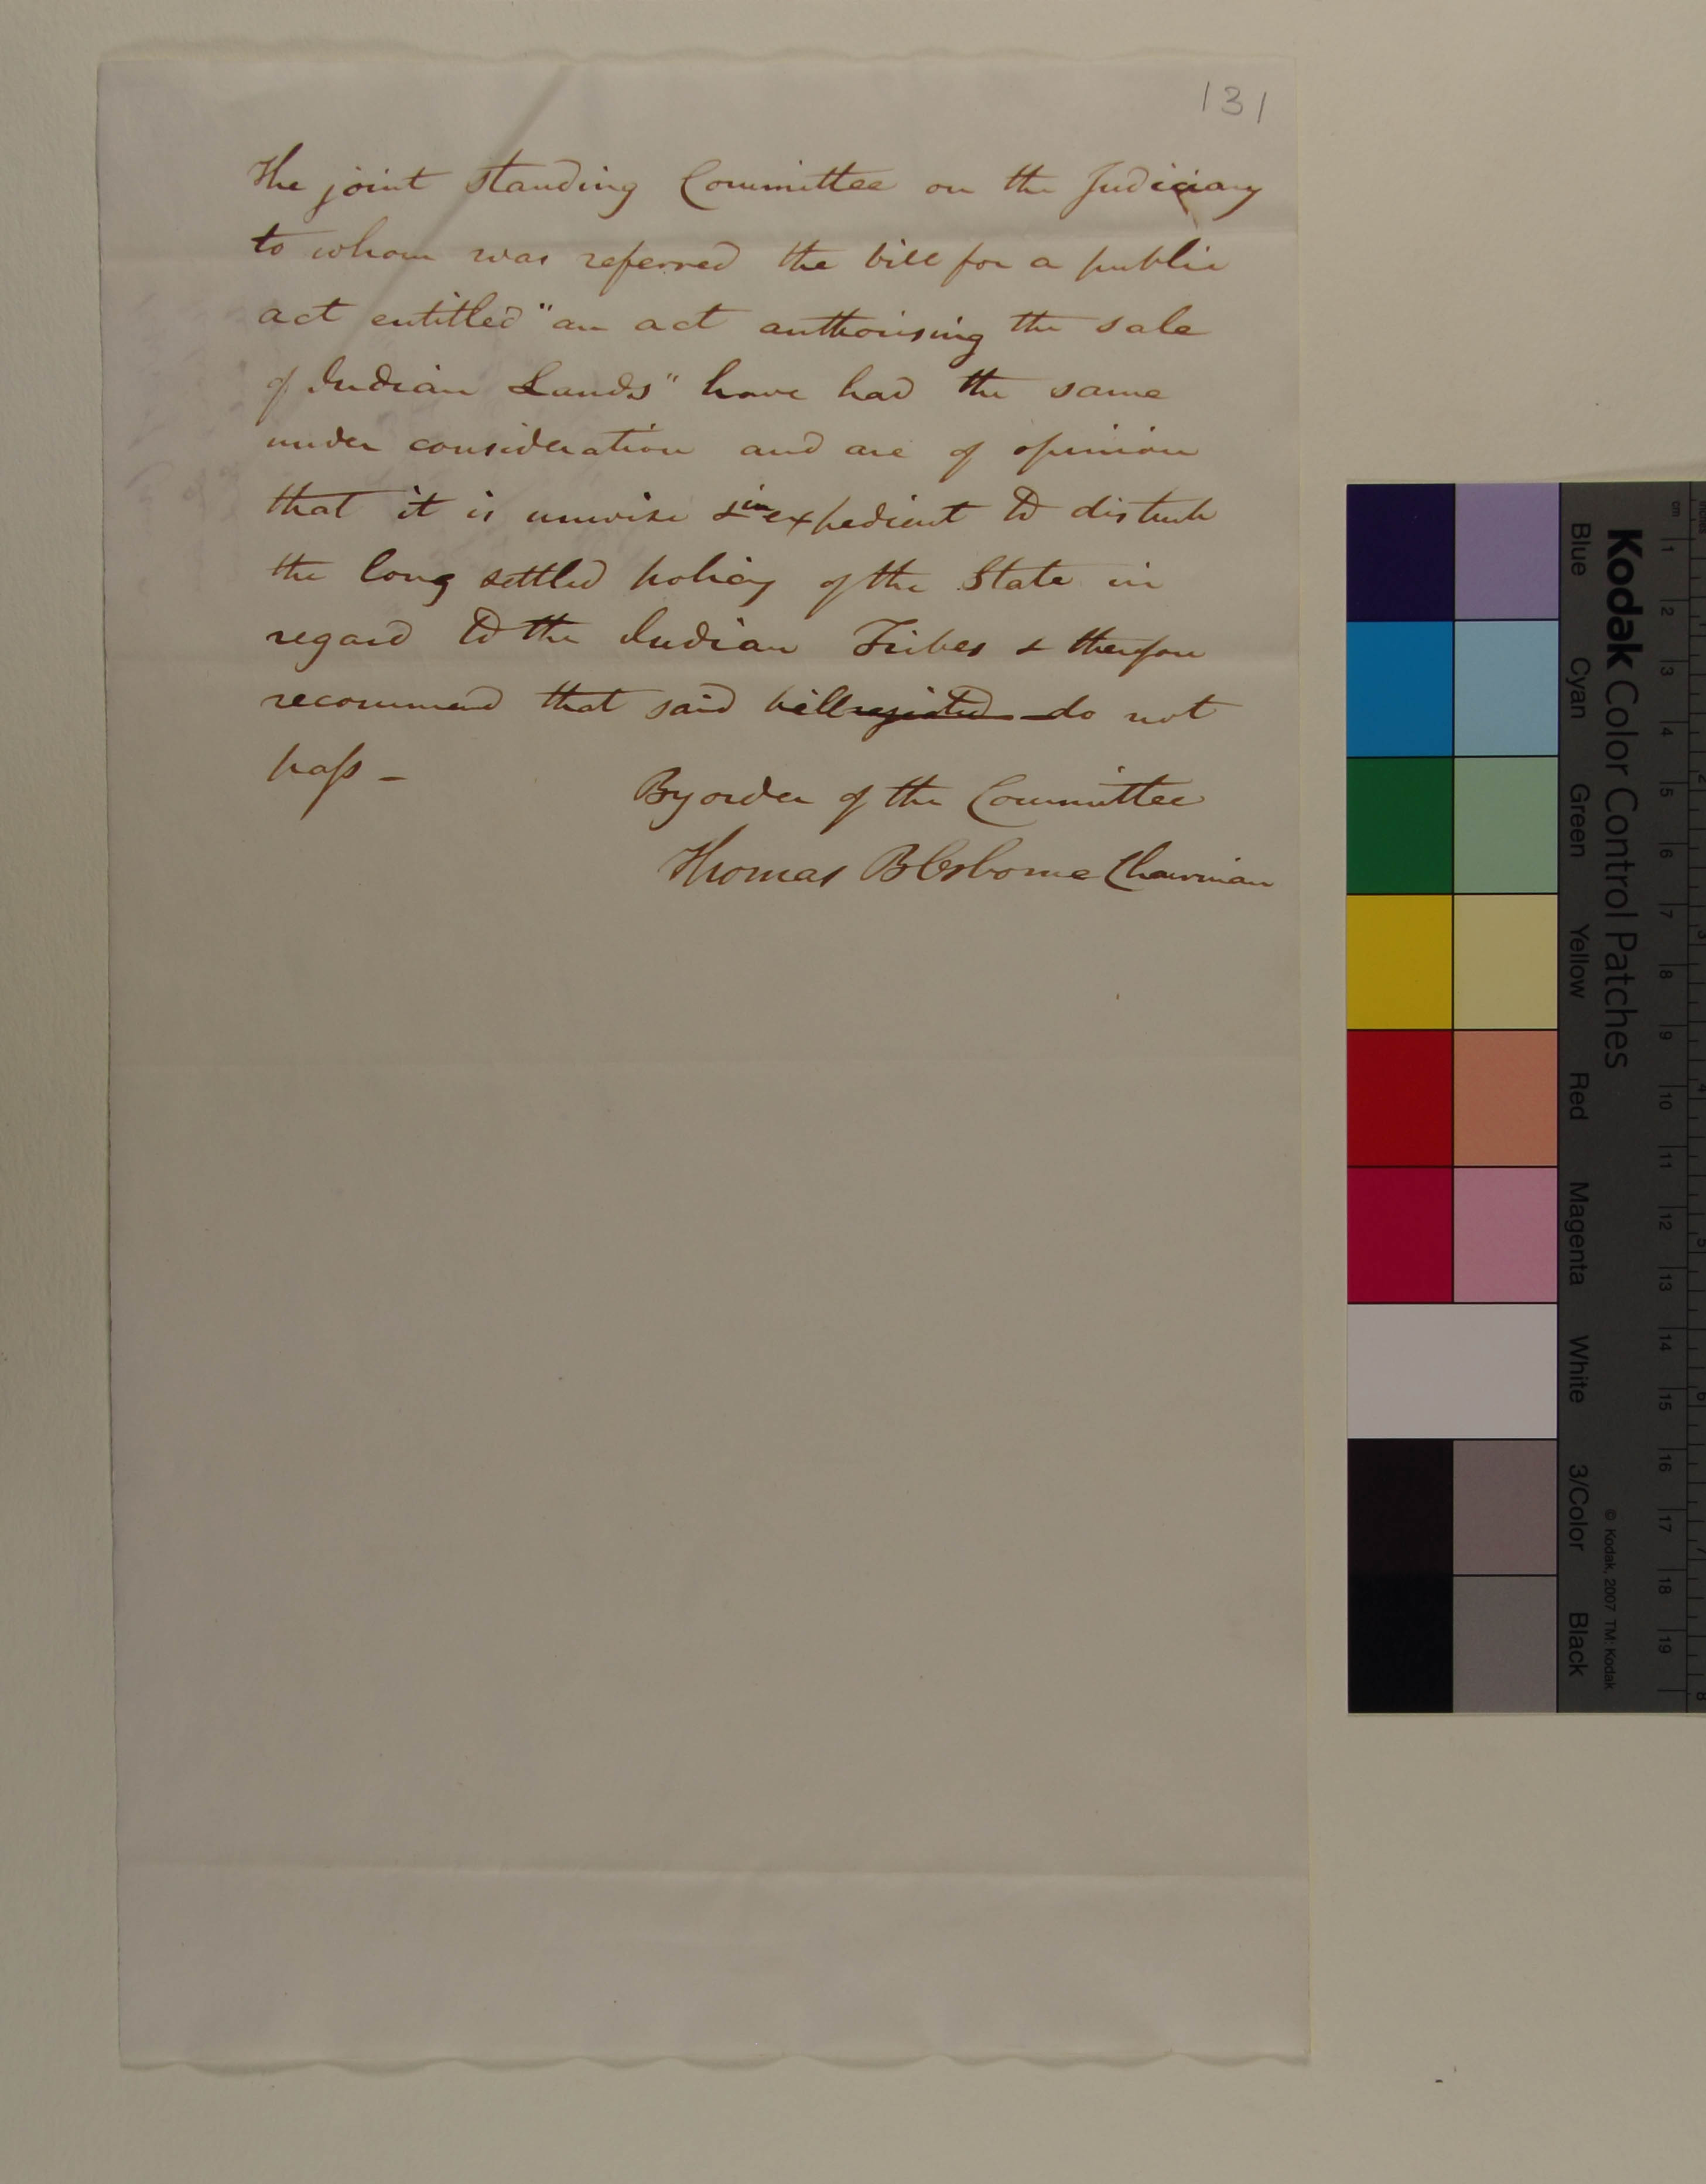 131
The joint standing Committee on the Judiciary
to whom was referred the bill for a public
act entitled "an act authorising the sale
of Indian Lands" have had the same
under consideration and are of opinion
that it is unwise & inexpedient to disturb
the long settled policy of the State in
regard to the Indian Tribes & therefore
recommend that said bill rejected do not
pass —
By order of the Committee
Thomas B Osborne Chairman
Kodak Color Control Patches
Blue Cyan Green Yellow Red Magenta White 3/Color Black
© Kodak, 2007 TM: Kodak
cm 1 2 3 4 5 6 7 8 9 10 11 12 13 14 15 16 17 18 19